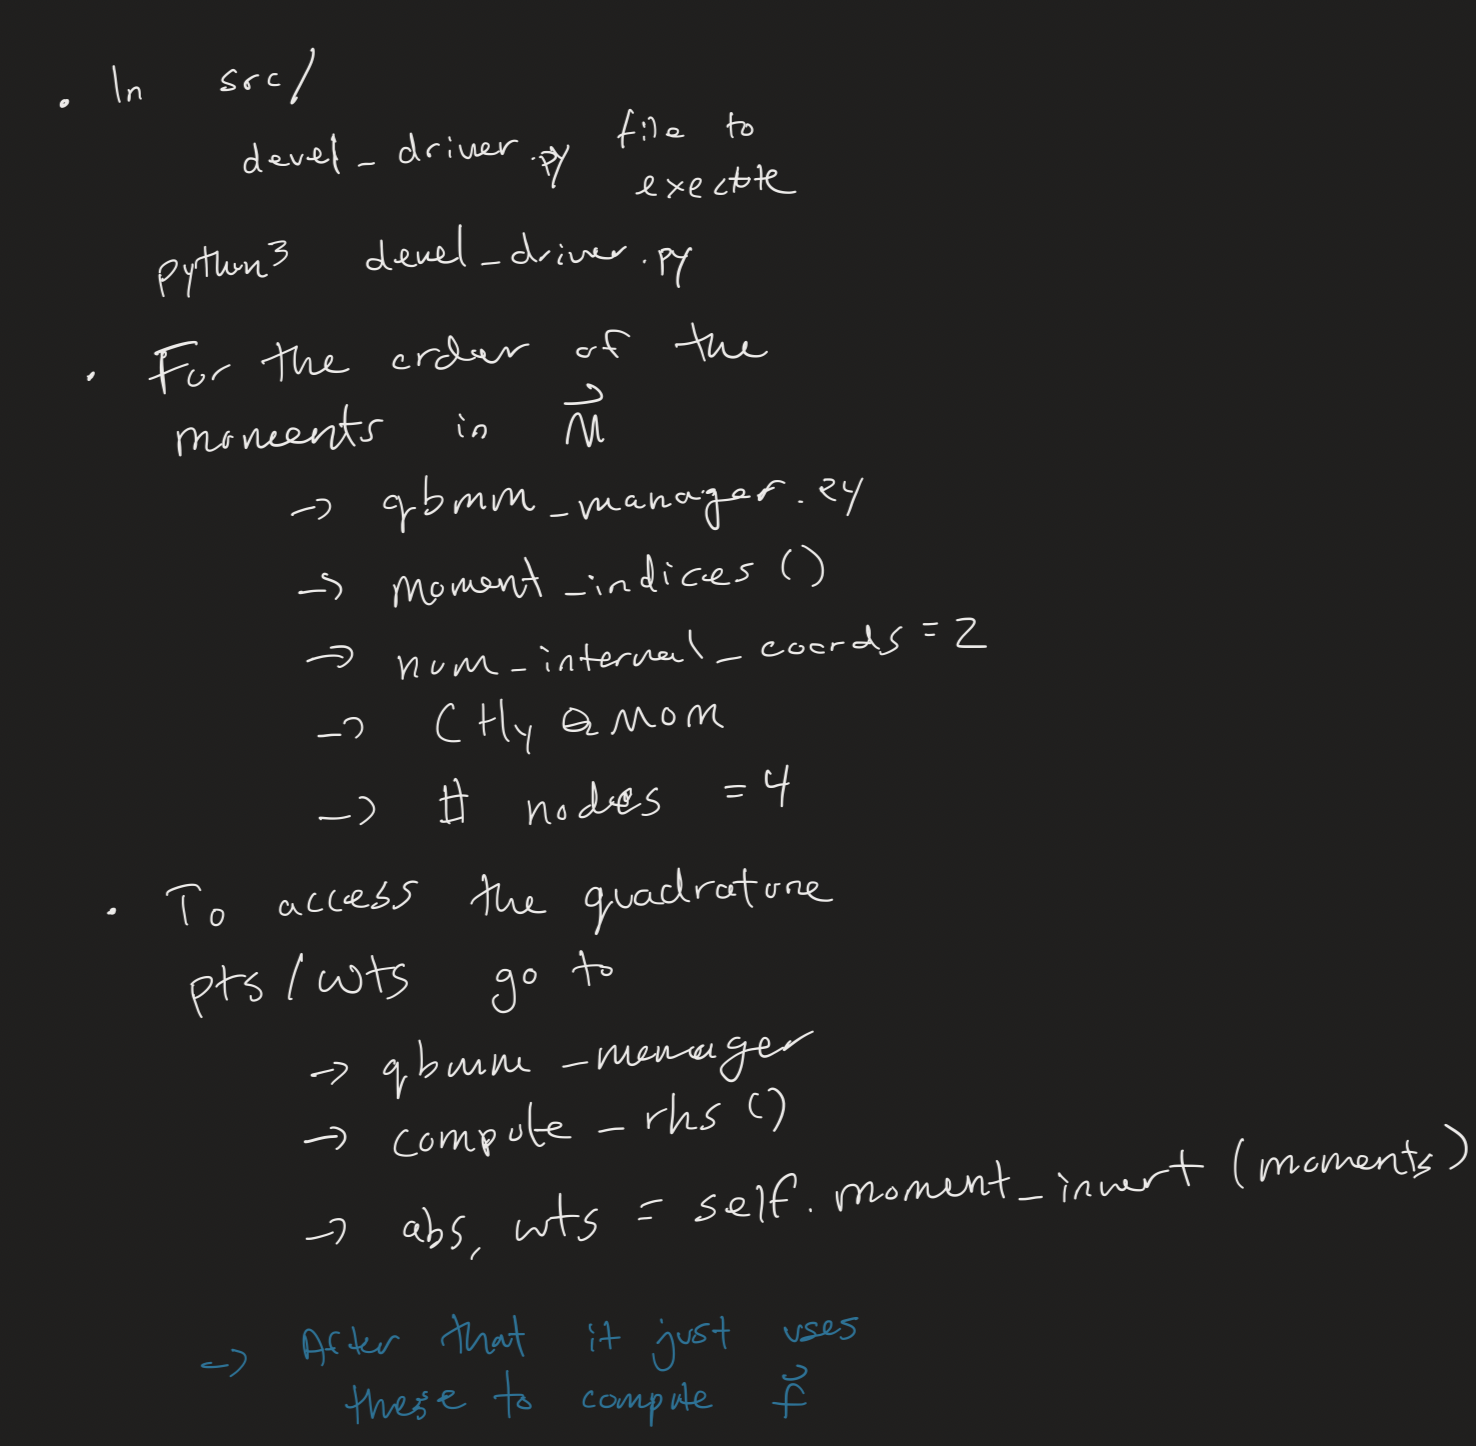 • In src/
devel_driver.py file to
execute
python3 devel_driver.py
• For the order of the
moments in M⃗
→ qbmm_manager.py
→ moment_indices()
→ num_internal_coords = 2
→ CHyQMOM
→ # nodes = 4
• To access the quadrature
pts/wts go to
→ qbmm_manager
→ compute_rhs()
→ abs, wts = self.moment_invert(moments)
→ After that it just uses
these to compute f⃗